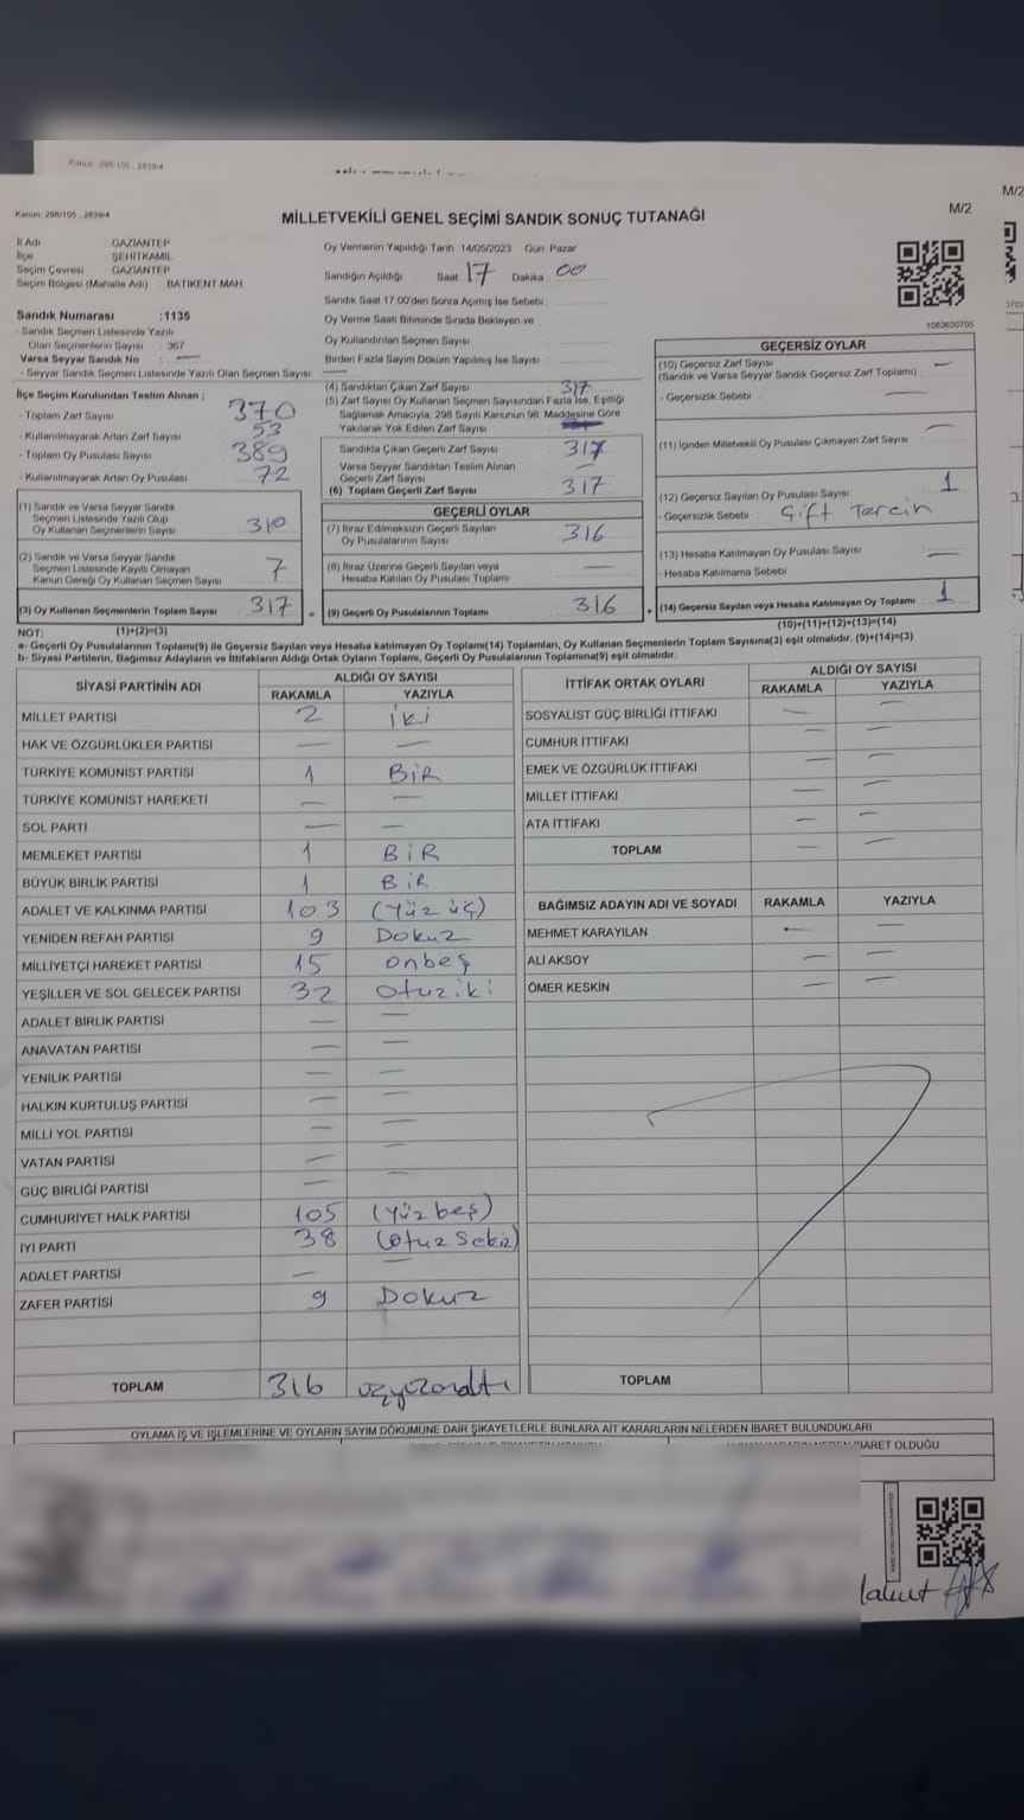 Kanun: 298/105 , 2839/4
M/2
Kanun: 298/105 , 2839/4
MİLLETVEKİLİ GENEL SEÇİMİ SANDIK SONUÇ TUTANAĞI
M/2
İl Adı GAZİANTEP
İlçe ŞEHİTKAMİL
Seçim Çevresi GAZİANTEP
Seçim Bölgesi (Mahalle Adı) BATIKENT MAH.
Oy Vermenin Yapıldığı Tarih 14/05/2023 Gün Pazar
Sandığın Açıldığı Saat 17 Dakika 00
Sandık Saat 17:00'den Sonra Açılmış İse Sebebi
Oy Verme Saati Bitiminde Sırada Bekleyen ve
Oy Kullandırılan Seçmen Sayısı
Birden Fazla Sayım Döküm Yapılmış İse Sayısı
Sandık Numarası :1135
- Sandık Seçmen Listesinde Yazılı
Olan Seçmenlerin Sayısı : 367
Varsa Seyyar Sandık No : —
- Seyyar Sandık Seçmen Listesinde Yazılı Olan Seçmen Sayısı: —
İlçe Seçim Kurulundan Teslim Alınan ;
- Toplam Zarf Sayısı 370
- Kullanılmayarak Artan Zarf Sayısı 53
- Toplam Oy Pusulası Sayısı 389
- Kullanılmayarak Artan Oy Pusulası 72
(1) Sandık ve Varsa Seyyar Sandık
Seçmen Listesinde Yazılı Olup
Oy Kullanan Seçmenlerin Sayısı 310
(2) Sandık ve Varsa Seyyar Sandık
Seçmen Listesinde Kayıtlı Olmayan
Kanun Gereği Oy Kullanan Seçmen Sayısı 7
(3) Oy Kullanan Seçmenlerin Toplam Sayısı 317 =
(1)+(2)=(3)
(4) Sandıktan Çıkan Zarf Sayısı 317
(5) Zarf Sayısı Oy Kullanan Seçmen Sayısından Fazla İse, Eşitliği
Sağlamak Amacıyla, 298 Sayılı Kanunun 98. Maddesine Göre
Yakılarak Yok Edilen Zarf Sayısı
Sandıkta Çıkan Geçerli Zarf Sayısı 317
Varsa Seyyar Sandıktan Teslim Alınan
Geçerli Zarf Sayısı —
(6) Toplam Geçerli Zarf Sayısı 317
GEÇERLİ OYLAR
(7) İtiraz Edilmeksizin Geçerli Sayılan
Oy Pusulalarının Sayısı 316
(8) İtiraz Üzerine Geçerli Sayılan veya
Hesaba Katılan Oy Pusulası Toplamı —
(9) Geçerli Oy Pusulalarının Toplamı 316 +
1063630705
GEÇERSİZ OYLAR
(10) Geçersiz Zarf Sayısı —
(Sandık ve Varsa Seyyar Sandık Geçersiz Zarf Toplamı)
- Geçersizlik Sebebi —
(11) İçinden Milletvekili Oy Pusulası Çıkmayan Zarf Sayısı —
(12) Geçersiz Sayılan Oy Pusulası Sayısı 1
- Geçersizlik Sebebi Çift Tercih
(13) Hesaba Katılmayan Oy Pusulası Sayısı —
- Hesaba Katılmama Sebebi
(14) Geçersiz Sayılan veya Hesaba Katılmayan Oy Toplamı 1
(10)+(11)+(12)+(13)=(14)
NOT:
a- Geçerli Oy Pusulalarının Toplamı(9) ile Geçersiz Sayılan veya Hesaba katılmayan Oy Toplamı(14) Toplamları, Oy Kullanan Seçmenlerin Toplam Sayısına(3) eşit olmalıdır. (9)+(14)=(3)
b- Siyasi Partilerin, Bağımsız Adayların ve İttifakların Aldığı Ortak Oyların Toplamı, Geçerli Oy Pusulalarının Toplamına(9) eşit olmalıdır.
SİYASİ PARTİNİN ADI ALDIĞI OY SAYISI
RAKAMLA YAZIYLA
MİLLET PARTİSİ 2 iki
HAK VE ÖZGÜRLÜKLER PARTİSİ — —
TÜRKİYE KOMÜNİST PARTİSİ 1 BİR
TÜRKİYE KOMÜNİST HAREKETİ — —
SOL PARTİ — —
MEMLEKET PARTİSİ 1 BİR
BÜYÜK BİRLİK PARTİSİ 1 BİR
ADALET VE KALKINMA PARTİSİ 103 (Yüz üç)
YENİDEN REFAH PARTİSİ 9 Dokuz
MİLLİYETÇİ HAREKET PARTİSİ 15 onbeş
YEŞİLLER VE SOL GELECEK PARTİSİ 32 otuz iki
ADALET BİRLİK PARTİSİ — —
ANAVATAN PARTİSİ — —
YENİLİK PARTİSİ — —
HALKIN KURTULUŞ PARTİSİ — —
MİLLİ YOL PARTİSİ — —
VATAN PARTİSİ — —
GÜÇ BİRLİĞİ PARTİSİ — —
CUMHURİYET HALK PARTİSİ 105 (Yüz beş)
İYİ PARTİ 38 (otuz sekiz)
ADALET PARTİSİ — —
ZAFER PARTİSİ 9 Dokuz
TOPLAM 316 üçyüzonaltı
İTTİFAK ORTAK OYLARI ALDIĞI OY SAYISI
RAKAMLA YAZIYLA
SOSYALİST GÜÇ BİRLİĞİ İTTİFAKI — —
CUMHUR İTTİFAKI — —
EMEK VE ÖZGÜRLÜK İTTİFAKI — —
MİLLET İTTİFAKI — —
ATA İTTİFAKI — —
TOPLAM — —
BAĞIMSIZ ADAYIN ADI VE SOYADI RAKAMLA YAZIYLA
MEHMET KARAYILAN — —
ALİ AKSOY — —
ÖMER KESKİN — —
TOPLAM
OYLAMA İŞ VE İŞLEMLERİNE VE OYLARIN SAYIM DÖKÜMÜNE DAİR ŞİKAYETLERLE BUNLARA AİT KARARLARIN NELERDEN İBARET BULUNDUKLARI
İBARET OLDUĞU